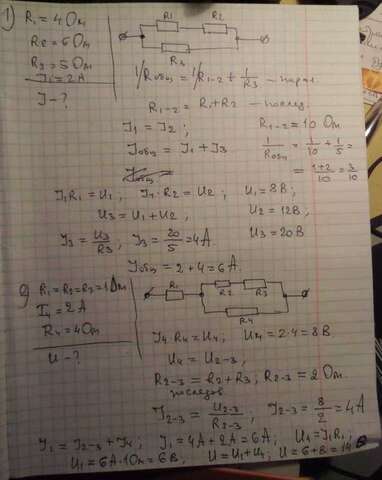 1) R₁ = 4 Ом
R₂ = 6 Ом
R₃ = 5 Ом
J₁ = 2А
J - ?
R1 R2
R3
1/Rобщ = 1/R1-2 + 1/R3 - парал.
R1-2 = R₁ + R₂ - послед.
J₁ = J₂ ;
R1-2 = 10 Ом
Jобщ = J₁ + J₃
1/Rобщ = 1/10 + 1/5 =
= 1+2/10 = 3/10
J₁R₁ = U₁ ; J₁·R₂ = U₂ ; U₁ = 8В ;
U₃ = U₁ + U₂ ; U₂ = 12В ;
J₃ = U₃/R₃ ; J₃ = 20/5 = 4А U₃ = 20В
Jобщ = 2 + 4 = 6А.
2) R₁ = R₂ = R₃ = 1 Ом
I₄ = 2А
R₄ = 4Ом
U - ?
R1 R2 R3
R4
J₄·R₄ = U₄ ; U₄ = 2·4 = 8В
U₄ = U2-3 ;
R2-3 = R₂ + R₃ ; R2-3 = 2 Ом.
последов
J2-3 = U2-3/R2-3 ; J2-3 = 8/2 = 4А
J₁ = J2-3 + J₄ ; J₁ = 4А + 2А = 6А ; U₁ = J₁R₁ ;
U₁ = 6А·1Ом = 6В ; U = U₁ + U₄ ; U = 6 + 8 = 14В